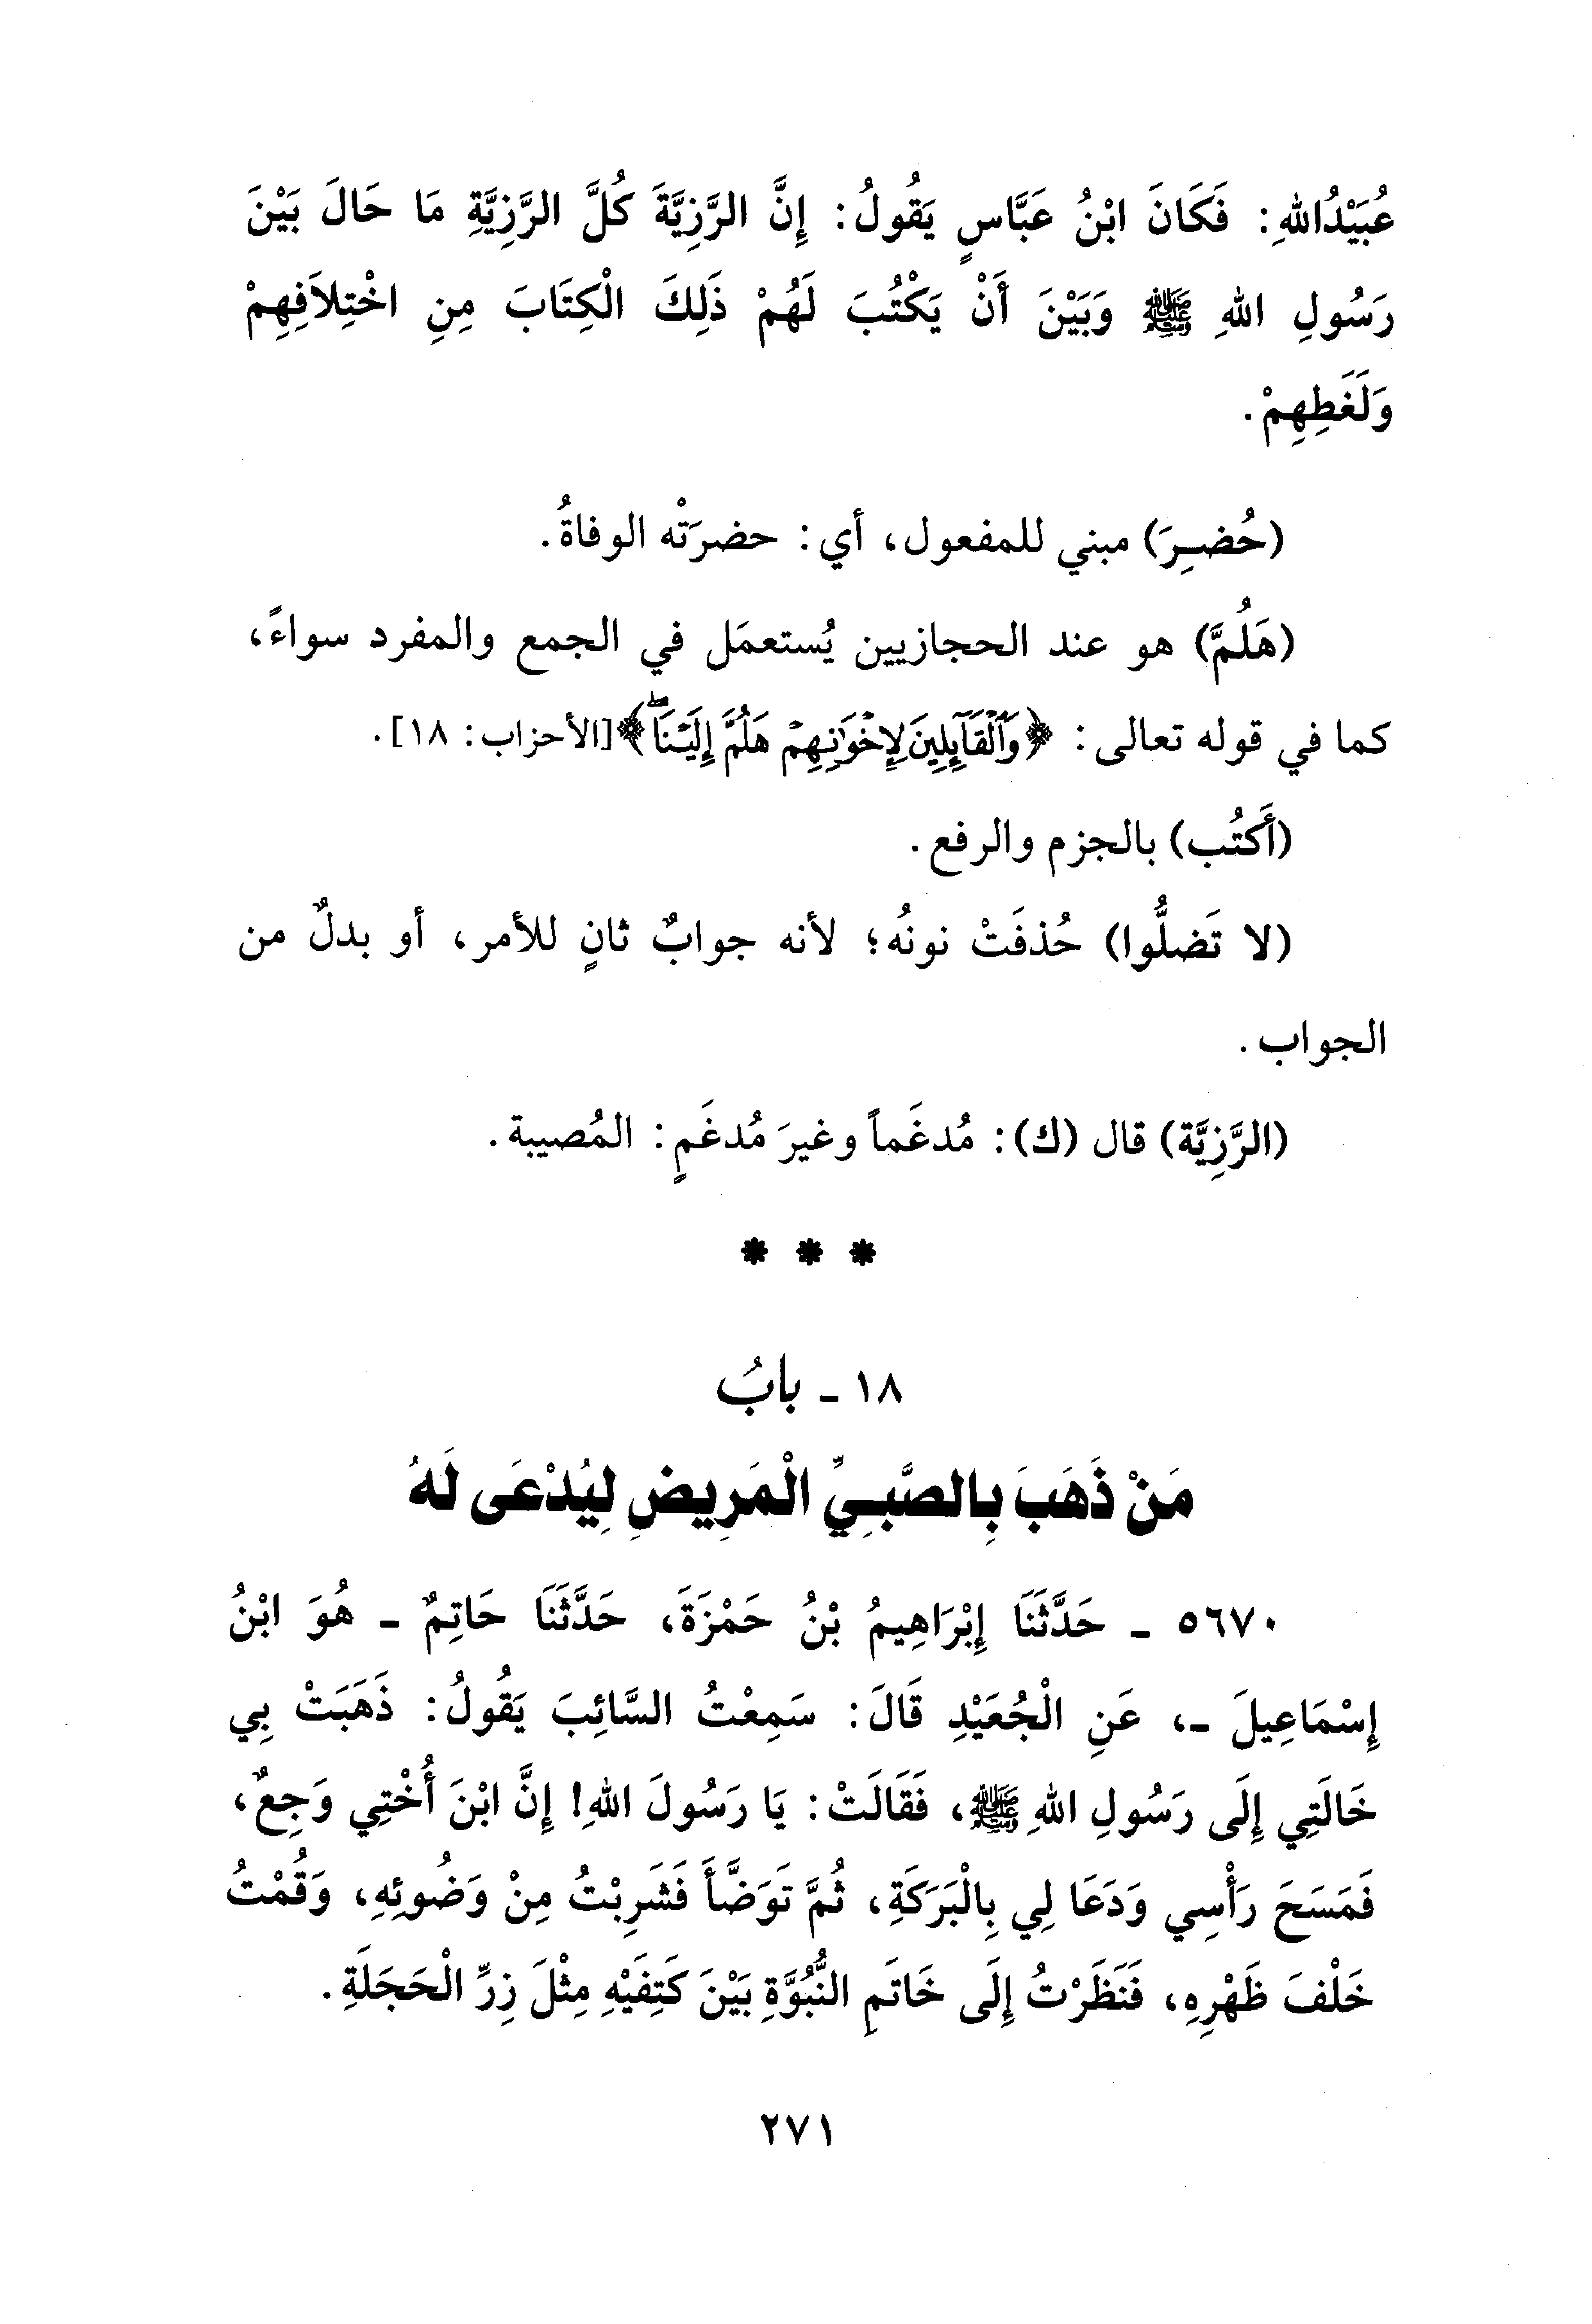 عُبَيْدُاللهِ: فَكَانَ ابْنُ عَبَّاسٍ يَقُولُ: إِنَّ الرَّزِيَّةَ كُلَّ الرَّزِيَّةِ مَا حَالَ بَيْنَ
رَسُولِ اللهِ ﷺ وَبَيْنَ أَنْ يَكْتُبَ لَهُمْ ذَلِكَ الْكِتَابَ مِنِ اخْتِلاَفِهِمْ
وَلَغَطِهِمْ.
(حُضِرَ) مبني للمفعول، أي: حضرَتْه الوفاةُ.
(هَلُمَّ) هو عند الحجازيين يُستعمَل في الجمع والمفرد سواءً،
كما في قوله تعالى: ﴿وَٱلْقَآئِلِينَ لِإِخْوَٰنِهِمْ هَلُمَّ إِلَيْنَا ۖ﴾ [الأحزاب: ١٨].
(أَكتُب) بالجزم والرفع.
(لا تَضلُّوا) حُذفَتْ نونُه؛ لأنه جوابٌ ثانٍ للأمر، أو بدلٌ من
الجواب.
(الرَّزِيَّة) قال (ك): مُدغَماً وغيرَ مُدغَمٍ: المُصيبة.
* * *
١٨ - بابُ
مَنْ ذَهَبَ بِالصَّبِيِّ الْمَرِيضِ لِيُدْعَى لَهُ
٥٦٧٠ - حَدَّثَنَا إِبْرَاهِيمُ بْنُ حَمْزَةَ، حَدَّثَنَا حَاتِمٌ - هُوَ ابْنُ
إِسْمَاعِيلَ -، عَنِ الْجُعَيْدِ قَالَ: سَمِعْتُ السَّائِبَ يَقُولُ: ذَهَبَتْ بِي
خَالَتِي إِلَى رَسُولِ اللهِ ﷺ، فَقَالَتْ: يَا رَسُولَ اللهِ! إِنَّ ابْنَ أُخْتِي وَجِعٌ،
فَمَسَحَ رَأْسِي وَدَعَا لِي بِالْبَرَكَةِ، ثُمَّ تَوَضَّأَ فَشَرِبْتُ مِنْ وَضُوئِهِ، وَقُمْتُ
خَلْفَ ظَهْرِهِ، فَنَظَرْتُ إِلَى خَاتَمِ النُّبُوَّةِ بَيْنَ كَتِفَيْهِ مِثْلَ زِرِّ الْحَجَلَةِ.
٢٧١